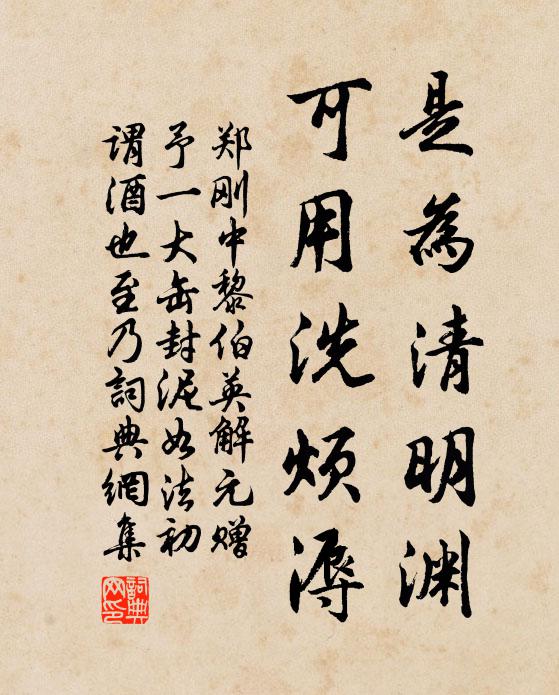 是為清明渊
可用洗烦溽
郑刚中黎伯英解元赠
予一大缶封泥如法初
谓酒也至乃詞典網集
詞典网印